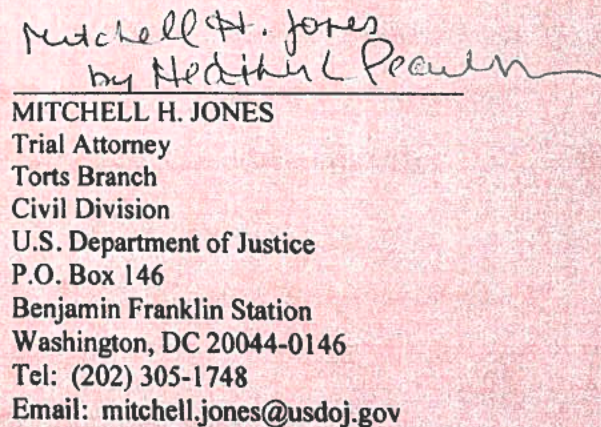 Mitchell H. Jones
by Heather L Pearlman
MITCHELL H. JONES
Trial Attorney
Torts Branch
Civil Division
U.S. Department of Justice
P.O. Box 146
Benjamin Franklin Station
Washington, DC 20044-0146
Tel: (202) 305-1748
Email: mitchell.jones@usdoj.gov